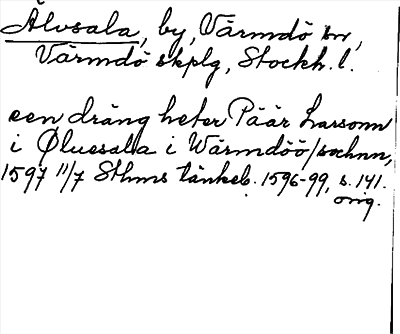 Älvsala, by, Värmdö sn,
Värmdö skplg, Stockh. l.
een dräng heter Päär Larsonn
i Øluesalla i Wärmdöö sochnn,
1597 11/7 Sthms tänkeb. 1596-99, s. 141.
orig.